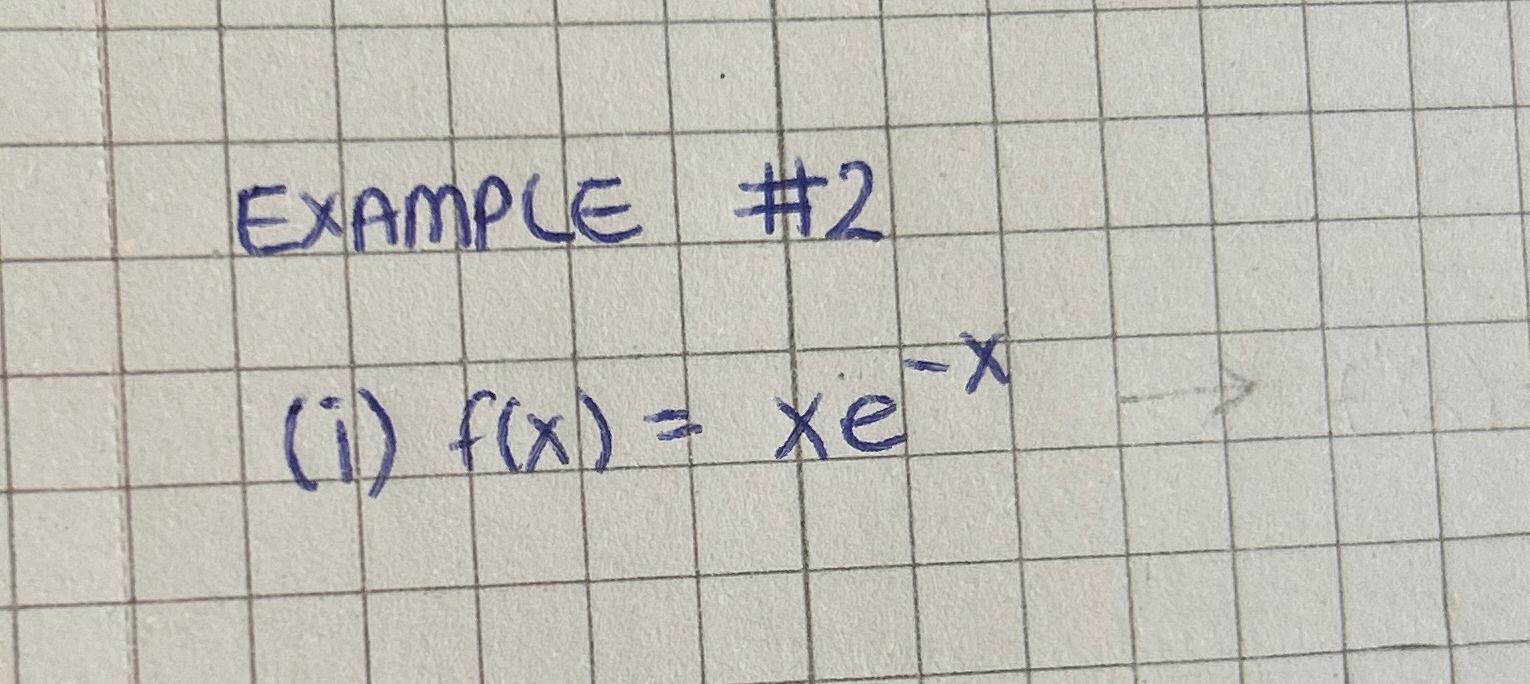 EXAMPLE #2
(i) f(x) = xe^{-x} →